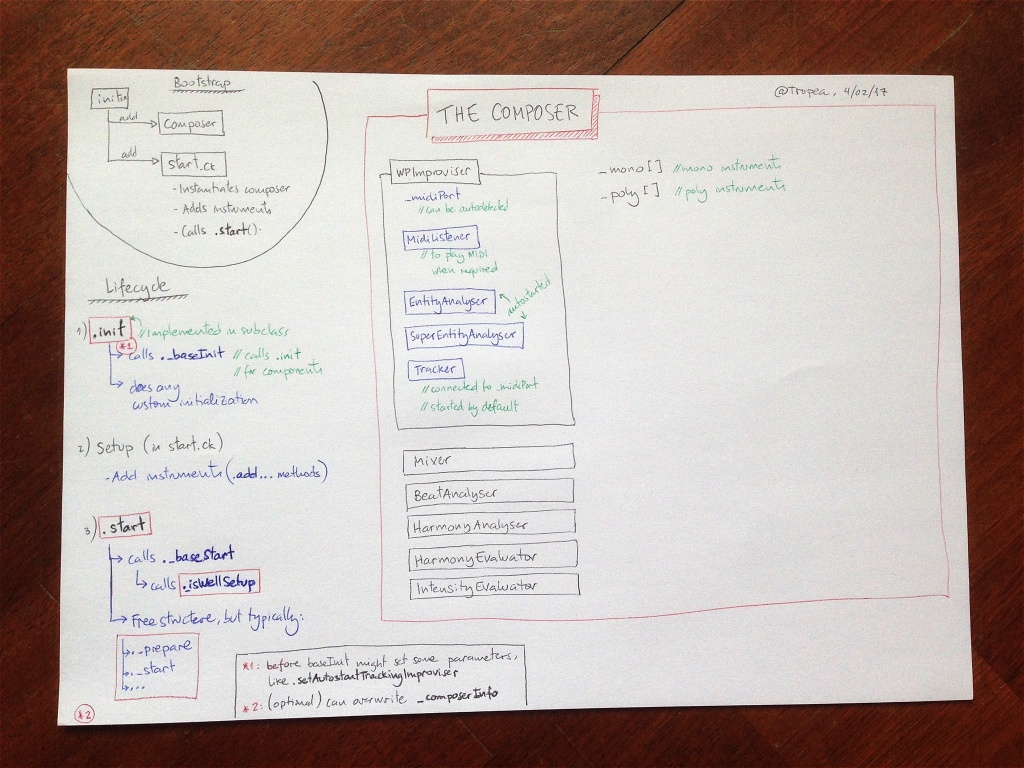 Bootstrap
init
add
Composer
add
start.ck
- Instantiates composer
- Adds instruments
- Calls .start().
Lifecycle
1) .init // implemented in subclass
*1
calls ._baseInit // calls .init
// for components
does any
custom initialization
2) Setup (in start.ck)
- Add instruments (.add... methods)
3) .start
calls ._baseStart
calls ._isWellSetup
Free structure, but typically:
._prepare
._start
...
*2
@Tropea, 4/02/17
THE COMPOSER
WPImproviser
_midiPort
// can be autodetected
MidiListener
// to play MIDI
when required
EntityAnalyser
autostarted
SuperEntityAnalyser
Tracker
// connected to _midiPort
// started by default
Mixer
BeatAnalyser
HarmonyAnalyser
HarmonyEvaluator
IntensityEvaluator
_mono[] // mono instruments
_poly[] // poly instruments
*1: before baseInit might set some parameters,
like .setAutostartTrackingImproviser
*2: (optional) can overwrite _composerInfo